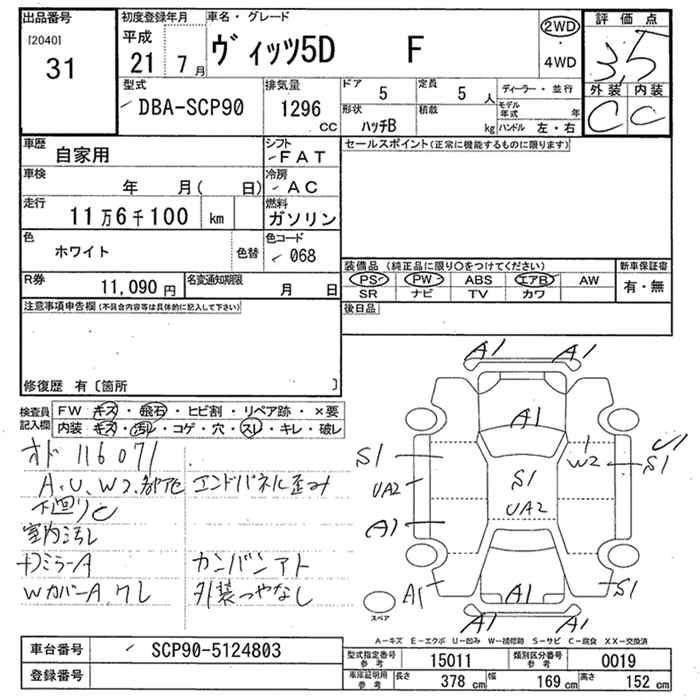 出品番号 初度登録年月 車名・グレード 評価点
[2040] 31
平成 21 7月 ヴィッツ5D F 2WD 4WD 3.5
型式 排気量 ドア 定員 ディーラー・並行 外装 内装
DBA-SCP90 1296 cc 5 5人 C C
形状 積載 モデル年式 年
ハッチB kg ハンドル 左・右
車歴 シフト セールスポイント(正常に機能するものに限ります)
自家用 FAT
車検 年 月( 日) 冷房 AC
走行 11万6千100 km 燃料 ガソリン
色 ホワイト 色替 色コード 068
R券 11,090円 名変通知期限 月 日
装備品(純正品に限り○をつけてください) 新車保証書
PS PW ABS エアB AW 有・無
SR ナビ TV カワ
注意事項申告欄(不具合内容等は具体的に記入して下さい) 後日品
修復歴 有〔箇所 〕
検査員記入欄 FW キズ・飛石・ヒビ割・リペア跡・×要
内装 キズ・汚れ・コゲ・穴・スレ・キレ・破レ
オド 116071
A.U.W2.部色 エンドパネル歪み
下廻りC
室内汚レ
ドミラーA カンバンアト
WカバーA.ワレ 外装つやなし
A1 A1
A1
S1 W2 S1
UA2 S1
UA2
A1
A1 A1 S1
A1 A1
スペア
A-キズ E-エクボ U-凹み W-補修跡 S-サビ C-腐食 XX-交換済
車台番号 SCP90-5124803
登録番号
型式指定番号 参考 15011 類別区分番号 参考 0019
車庫証明用 参考 長さ 378 cm 幅 169 cm 高さ 152 cm